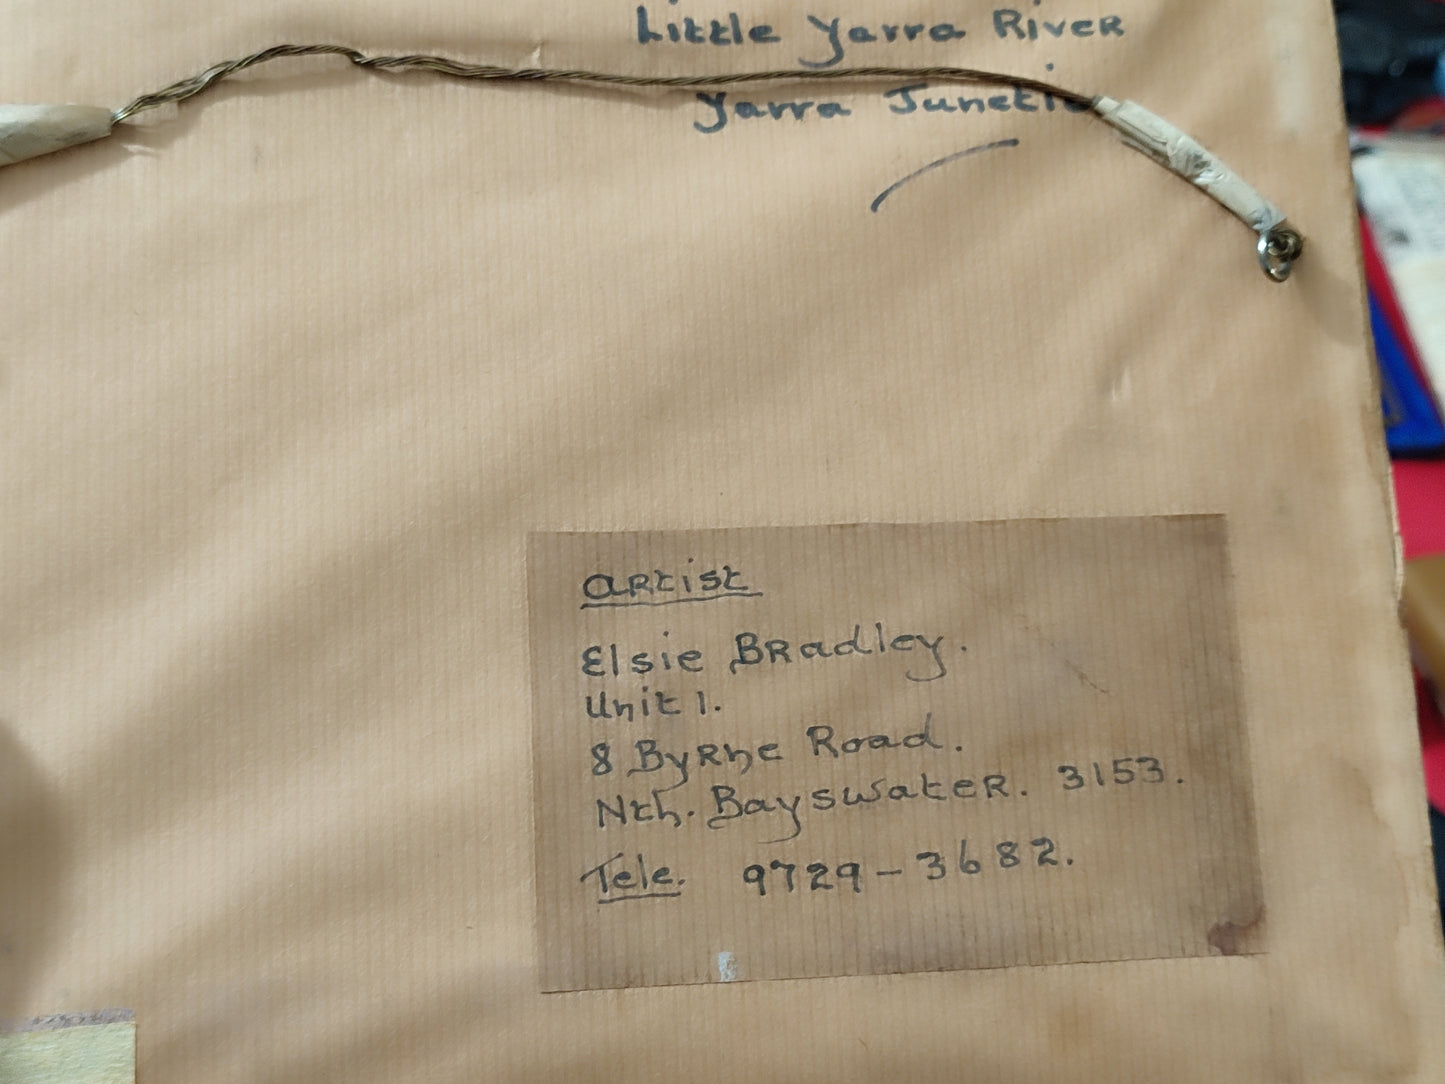 Little Yarra River
Yarra Junctio
Artist
Elsie Bradley.
Unit 1.
8 Byrne Road.
Nth. Bayswater. 3153.
Tele. 9729-3682.